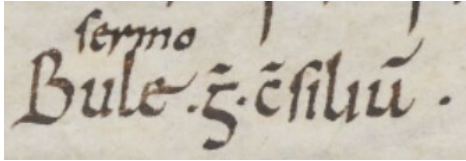 sermo
Bule .g̅. c̅siliū .